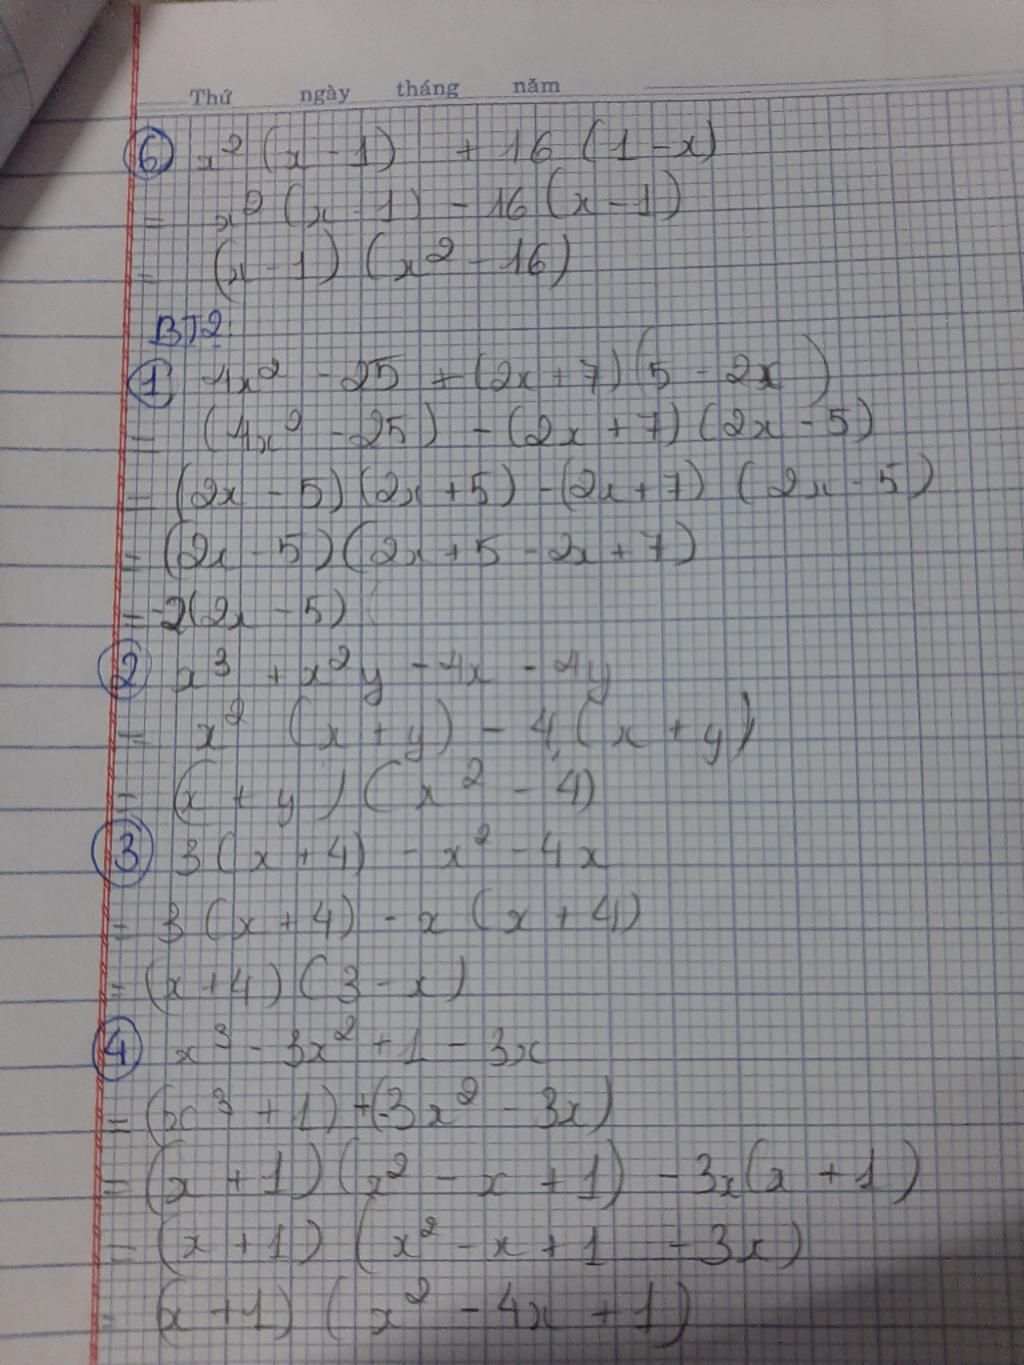 Thứ ngày tháng năm
6 x² (x - 1) + 16 (1 - x)
= x² (x - 1) - 16 (x - 1)
= (x - 1) (x² - 16)
BT2:
1 4x² - 25 + (2x + 7) (5 - 2x)
= (4x² - 25) - (2x + 7) (2x - 5)
= (2x - 5) (2x + 5) - (2x + 7) (2x - 5)
= (2x - 5) (2x + 5 - 2x + 7)
= -2 (2x - 5)
2 x³ + x²y - 4x - 4y
= x² (x + y) - 4 (x + y)
= (x + y) (x² - 4)
3 3 (x + 4) - x² - 4x
= 3 (x + 4) - x (x + 4)
= (x + 4) (3 - x)
4 x³ - 3x² + 1 - 3x
= (x³ + 1) + (-3x² - 3x)
= (x + 1) (x² - x + 1) - 3x (x + 1)
= (x + 1) (x² - x + 1 - 3x)
= (x + 1) (x² - 4x + 1)